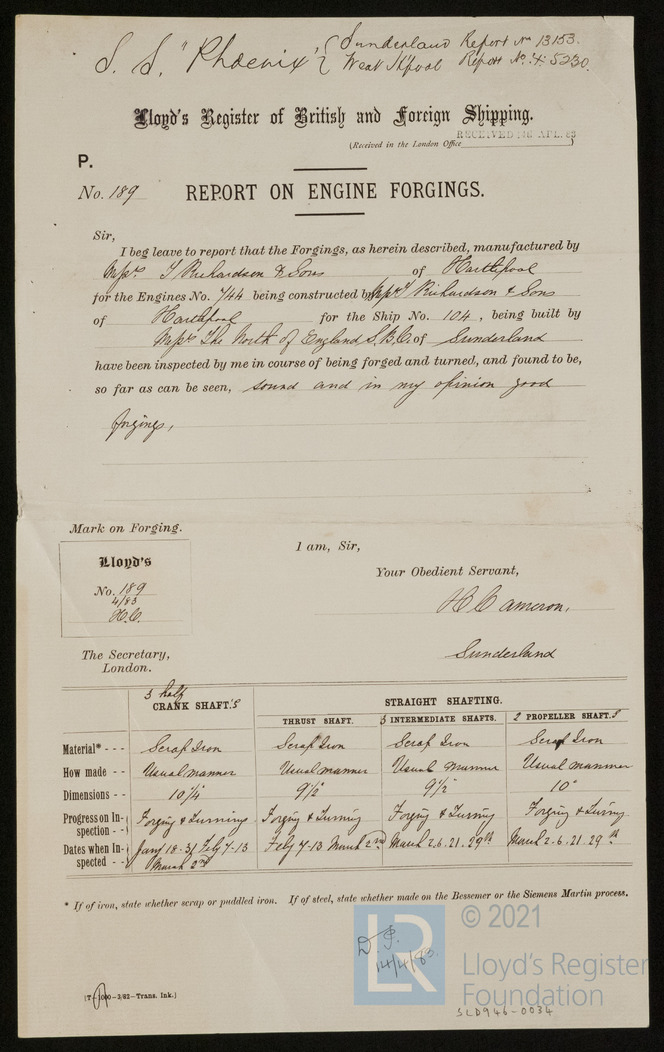 S. S. "Phoenix" { Sunderland Report No 13153.
West H'pool Report No. 5230.
Lloyd's Register of British and Foreign Shipping.
(Received in the London Office RECEIVED APL. 83 )
P.
No. 189 REPORT ON ENGINE FORGINGS.
Sir,
I beg leave to report that the Forgings, as herein described, manufactured by
Messrs. T Richardson & Sons of Hartlepool
for the Engines No. 744 being constructed by Messrs T Richardson & Sons
of Hartlepool for the Ship No. 104, being built by
Messrs The North of England S.B.C. of Sunderland
have been inspected by me in course of being forged and turned, and found to be,
so far as can be seen, sound and in my opinion good
forgings,
Mark on Forging.
Lloyd's
No. 189
4/83
H.C.
I am, Sir,
Your Obedient Servant,
H Cameron,
Sunderland
The Secretary,
London.
3 half
CRANK SHAFT.S
STRAIGHT SHAFTING.
THRUST SHAFT. 3 INTERMEDIATE SHAFTS. 2 PROPELLER SHAFT.S
Material* - - - Scrap Iron Scrap Iron Scrap Iron Scrap Iron
How made - - Usual manner Usual manner Usual manner Usual manner
Dimensions - - 10 1/4 9 1/2 9 1/2 10"
Progress on In-
spection - - Forging & Turning Forging & Turning Forging & Turning Forging & Turning
Dates when In-
spected - - Jany 18-31 Feby 7-13 March 2nd Feby 7-13 March 2nd March 2.6.21.29th March 2.6.21.29th
* If of iron, state whether scrap or puddled iron. If of steel, state whether made on the Bessemer or the Siemens Martin process.
14/4/83.
LR
© 2021
Lloyd's Register
Foundation
[T-1000-3/82-Trans. Ink.]
SLD946-0034